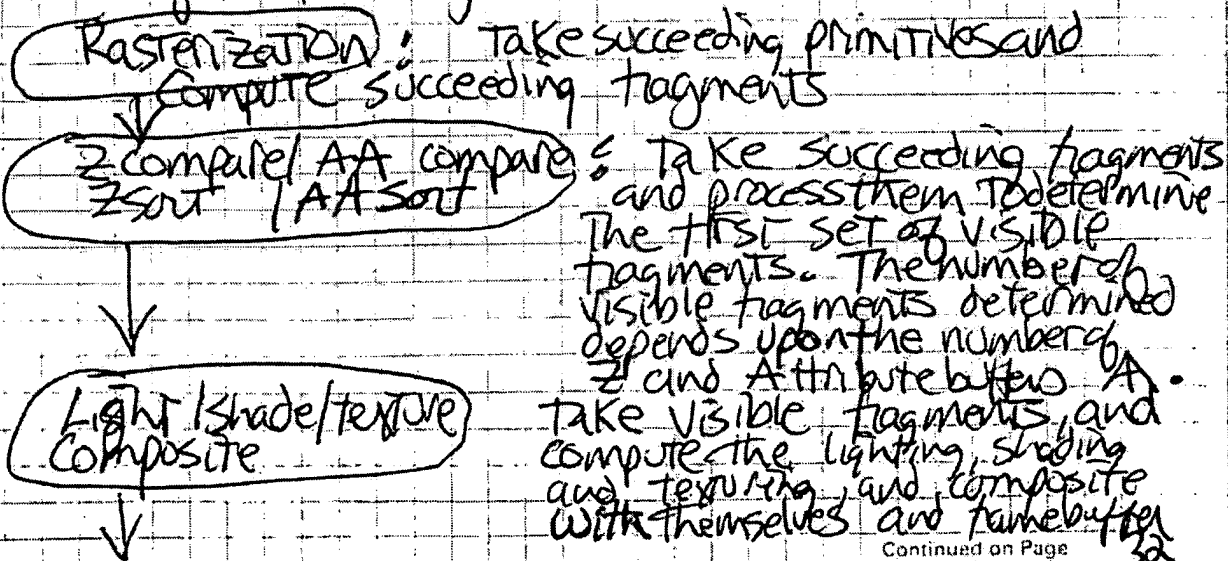 Rasterization : Take succeeding primitives and
Compute succeeding fragments
Z compare/ AA compare : Take succeeding fragments
Zsort / AA Sort and process them To determine
The first set of visible
fragments. The number of
visible fragments determined
depends upon the number of
Z and Attribute buffers A.
Light /shade/texture Take visible fragments, and
composite compute the lighting, shading
and texturing, and composite
with themselves and framebuffer
Continued on Page 32